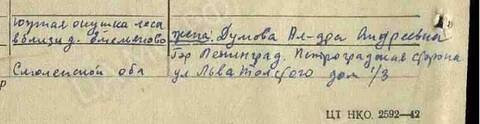 Южная опушка леса
вблизи д. Емельяново
Смоленской обл
жена. Думова Ал-дра Андреевна
Гор Ленинград. Петроградская сторона
ул Льва Толстого дом 1/3
ЦТ НКО. 2592—42